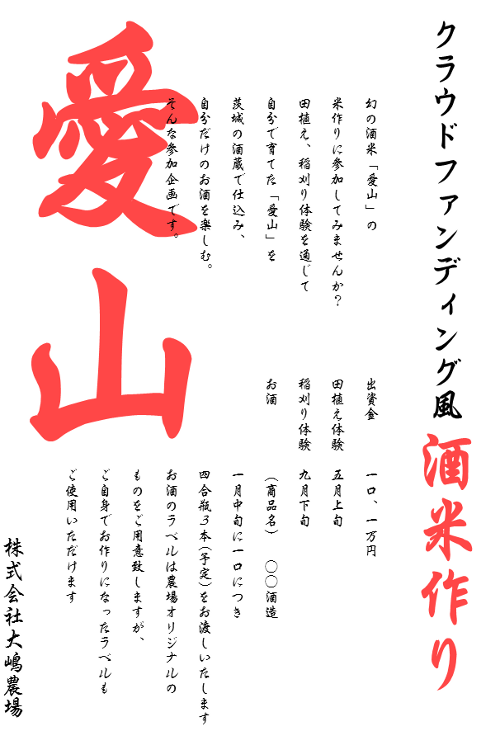 クラウドファンディング風 酒米作り
幻の酒米「愛山」の
米作りに参加してみませんか?
田植え、稲刈り体験を通じて
自分で育てた「愛山」を
茨城の酒蔵で仕込み、
自分だけのお酒を楽しむ。
そんな参加企画です。
愛山
出資金 一口、一万円
田植え体験 五月上旬
稲刈り体験 九月下旬
お酒 (商品名) 〇〇酒造
一月中旬に一口につき
四合瓶3本(予定)をお渡しいたします
お酒のラベルは農場オリジナルの
ものをご用意致しますが、
ご自身でお作りになったラベルも
ご使用いただけます
株式会社大嶋農場